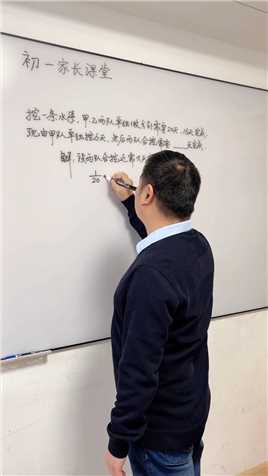 初一家长课堂
挖一条水渠,甲、乙两队单独做分别需要20天、15天完成.
现由甲队单独挖6天,然后两队合挖需要____天完成.
解:设两队合挖还需x天
1/20